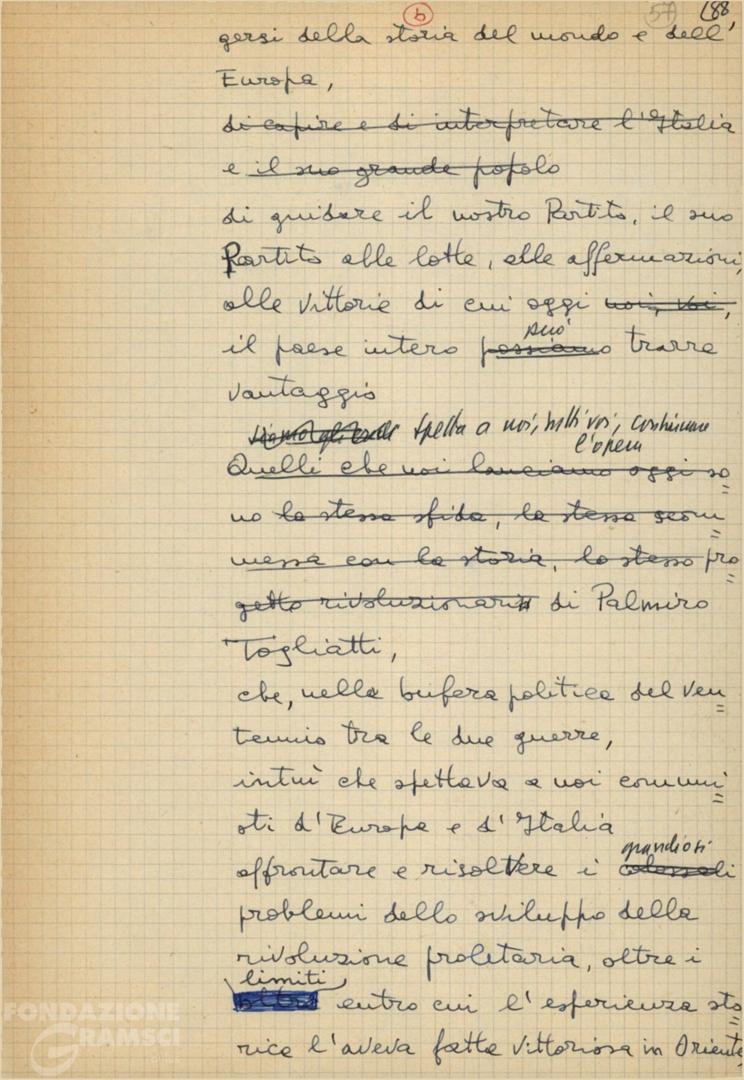 b 57 188,
gersi della storia del mondo e dell'
Europa,
di capire e di interpretare l'Italia
e il suo grande popolo
di guidare il nostro Partito, il suo
Partito alle lotte, alle affermazioni,
alle vittorie di cui oggi noi, voi,
può
il paese intero possiamo trarre
vantaggio
spetta a noi, tutti voi, continuare
l'opera
Quelli che noi lanciamo oggi so
no la stessa sfida, la stessa scom
messa con la storia, lo stesso pro
getto rivoluzionario di Palmiro
Togliatti,
che, nella bufera politica del ven
tennio tra le due guerre,
intuì che spettava a noi comuni
sti d'Europa e d'Italia
grandiosi
affrontare e risolvere i colossali
problemi dello sviluppo della
rivoluzione proletaria, oltre i
limiti
oltre entro cui l'esperienza sto
rica l'aveva fatta vittoriosa in Oriente,
FONDAZIONE
GRAMSCI